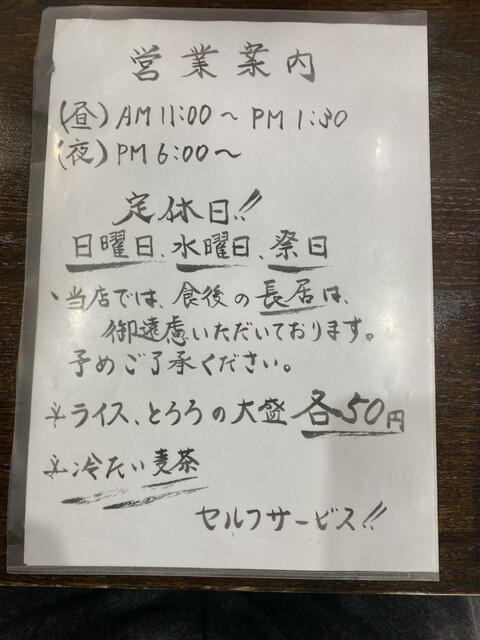 営業案内
(昼) AM 11:00〜 PM 1:30
(夜) PM 6:00〜
定休日!!
日曜日、水曜日、祭日
、当店では、食後の長居は、
御遠慮いただいております。
予めご了承ください。
※ライス、とろろの大盛 各50円
※冷たい麦茶
セルフサービス!!